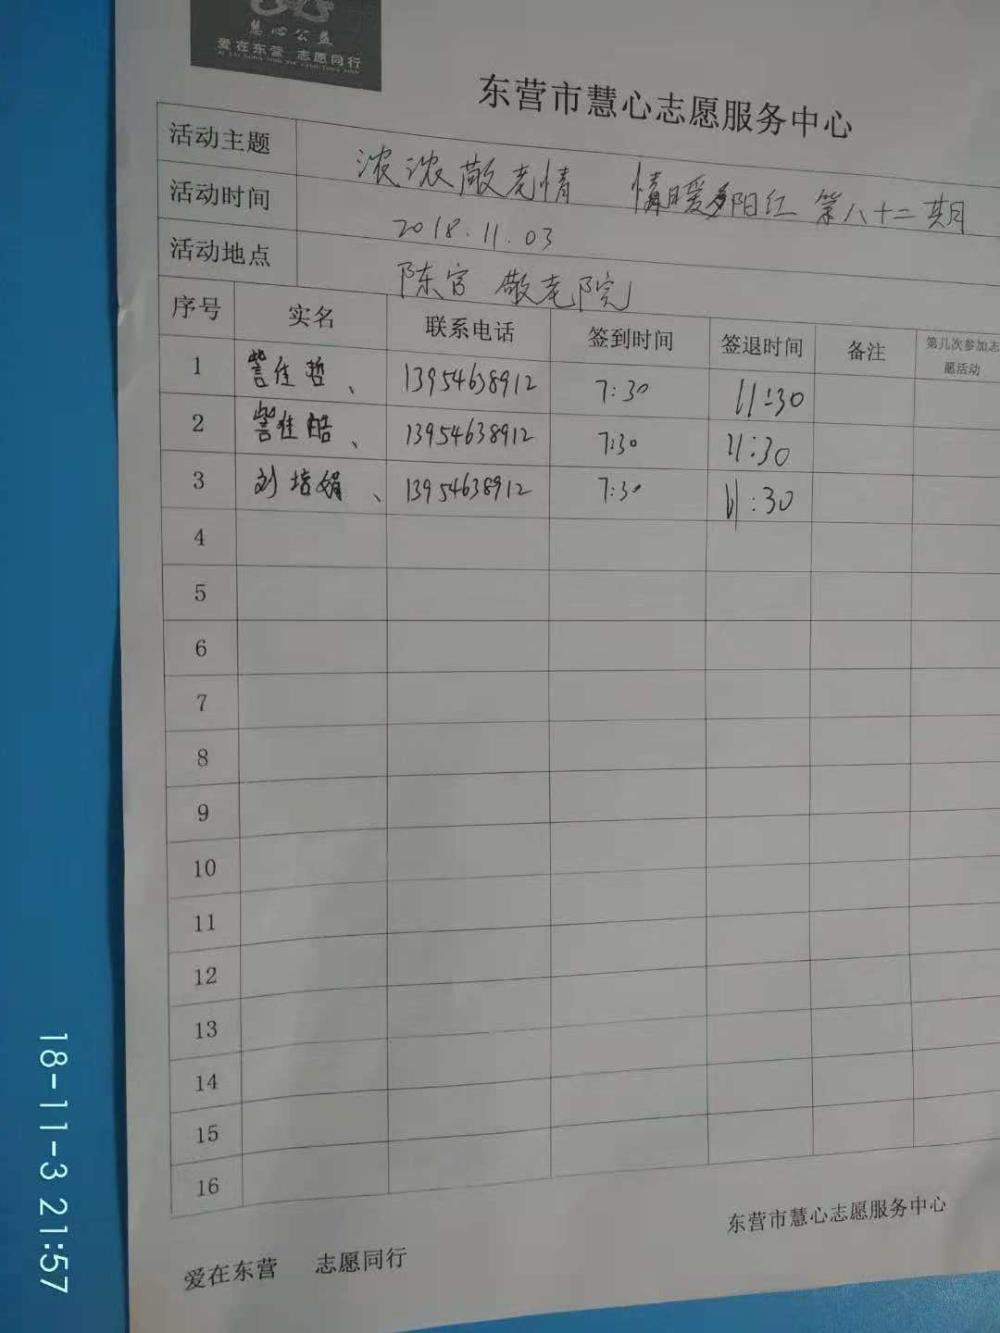 慧心公益
爱在东营 志愿同行
东营市慧心志愿服务中心
活动主题 浓浓敬老情 情暖夕阳红 第八十二期
活动时间 2018.11.03
活动地点 陈官 敬老院
序号 实名 联系电话 签到时间 签退时间 备注 第几次参加志愿活动
1 訾佳哲、 13954638912 7:30 11:30
2 訾佳皓、 13954638912 7:30 11:30
3 刘培娟、 13954638912 7:30 11:30
4
5
6
7
8
9
10
11
12
13
14
15
16
东营市慧心志愿服务中心
爱在东营 志愿同行
18-11-3 21:57